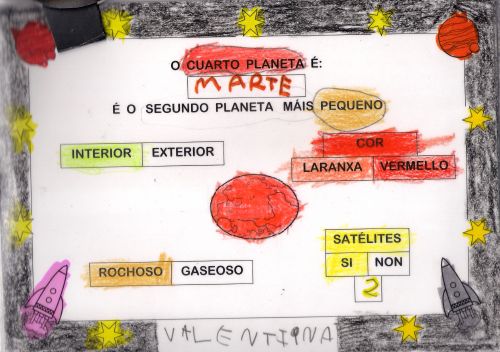 O CUARTO PLANETA É:
MARTE
É O SEGUNDO PLANETA MÁIS PEQUENO
INTERIOR EXTERIOR
COR
LARANXA VERMELLO
ROCHOSO GASEOSO
SATÉLITES
SI NON
2
VALENTINA